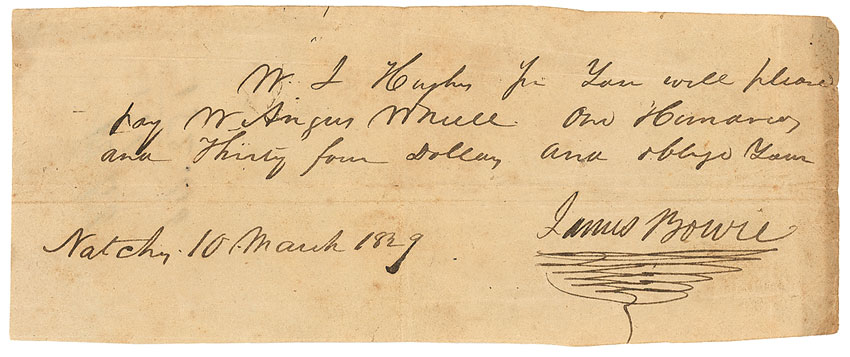 W. J Hughes Sir You will please
pay W. Angus Whill One Hundred
and Thirty four Dollars and oblige Your
James Bowie
Natchez 10 March 1829